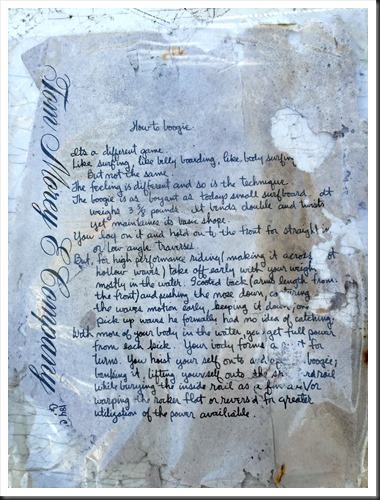 Tom Morey & Company
How to boogie
Its a different game.
Like surfing, like belly boarding, like body surfing
But not the same.
The feeling is different and so is the technique.
The boogie is as boyant as todays small surfboard. It
weighs 3 ½ pounds. It binds double and twists
yet maintaines its basic shape.
You lay on it and hold on to the front for straight in
or low angle traverses.
But, for high performance riding (making it across
hollow waves) take off early with your weight
mostly in the water. Scooted back (arms length from
the front) and pushing the nose down, capturing
the waves motion early, keeping it down, you
pick up waves he formally had no idea of catching.
With more of your body in the water you get full power
from each kick. Your body forms a for
turns. You hoist your self onto a boogie,
banking it, lifting yourself onto the rail
while burying the inside rail as a fin and/or
warping the rocker flat or reversed for greater
utilization of the power availiable.